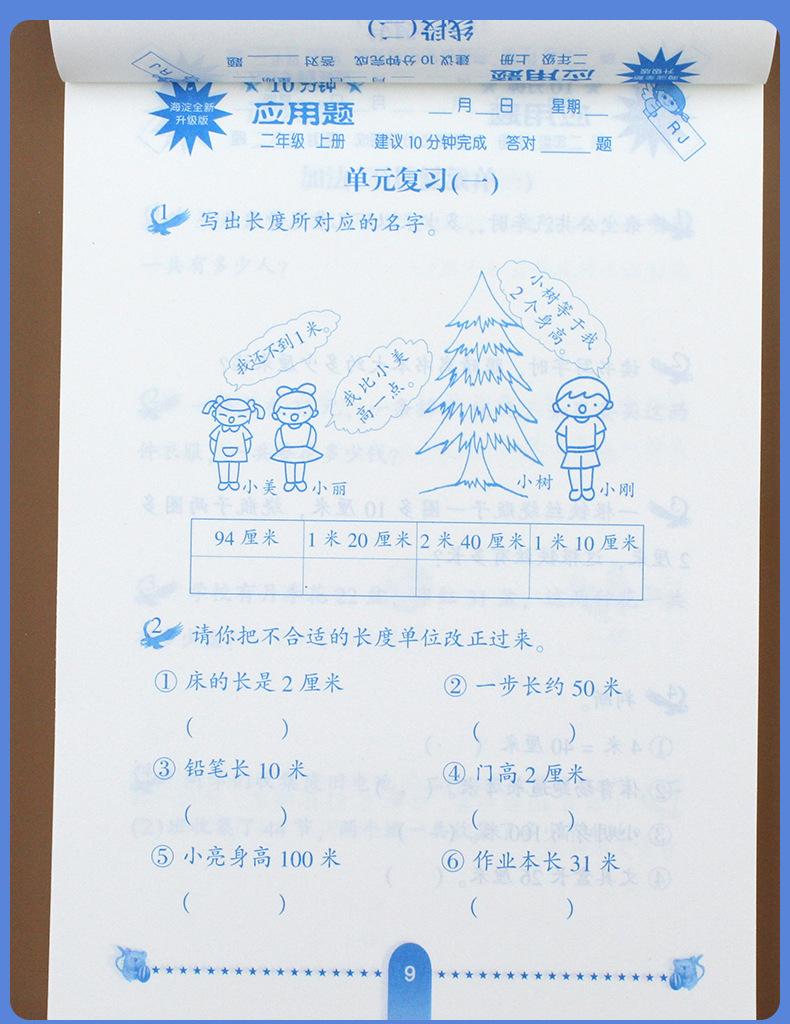 线段(二)
二年级 上册 建议 10 分钟完成 答对 ____ 题
应用题
海淀全新
升级版
RJ
10 分钟
海淀全新
升级版
应用题
__月__日 星期__
RJ
二年级 上册 建议 10 分钟完成 答对 ____ 题
单元复习(一)
1 写出长度所对应的名字。
小树等于我
2 个身高。
我还不到 1 米。
我比小美
高一点。
小美 小丽 小树 小刚
94 厘米 1 米 20 厘米 2 米 40 厘米 1 米 10 厘米
2 请你把不合适的长度单位改正过来。
① 床的长是 2 厘米 ② 一步长约 50 米
( ) ( )
③ 铅笔长 10 米 ④ 门高 2 厘米
( ) ( )
⑤ 小亮身高 100 米 ⑥ 作业本长 31 米
( ) ( )
9